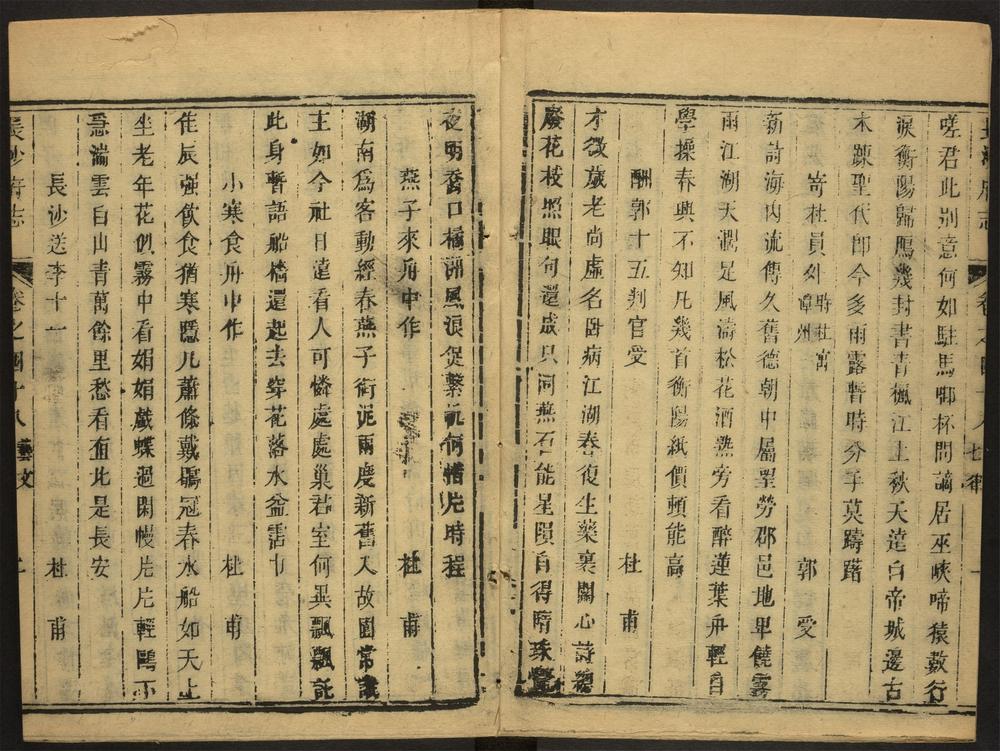 嗟君此別意何如駐馬啣杯問謫居巫峽啼猿數行
淚衡陽歸鴈幾封書青楓江上秋天遠白帝城邊古
木疎聖代即今多雨露暫時分手莫躊躇
寄杜員外 時杜寓潭州 郭受
新詩海內流傳久舊德朝中屬望勞郡邑地卑饒霧
雨江湖天濶足風濤松花酒熟旁看醉蓮葉舟輕自
學操春興不知凡幾首衡陽紙價頓能高
酬郭十五判官受 杜甫
才微歲老尚虛名臥病江湖春復生藥裹關心詩總
廢花枝照眼句還成只同燕石能星隕自得隋珠覺
夜明喬口橘洲風浪促繫帆何惜片時程
燕子來舟中作 杜甫
湖南爲客動經春燕子銜泥兩度新舊入故園常識
主如今社日遠看人可憐處處巢君室何異飄飄託
此身暫語船檣還起去穿花落水益霑巾
小寒食舟中作 杜甫
佳辰强飲食猶寒隱几蕭條戴鶡冠春水船如天上
坐老年花似霧中看娟娟戲蝶過閑幔片片輕鷗下
急湍雲白山青萬餘里愁看直北是長安
長沙送李十一 杜甫
長沙府志 卷之四十八 藝文